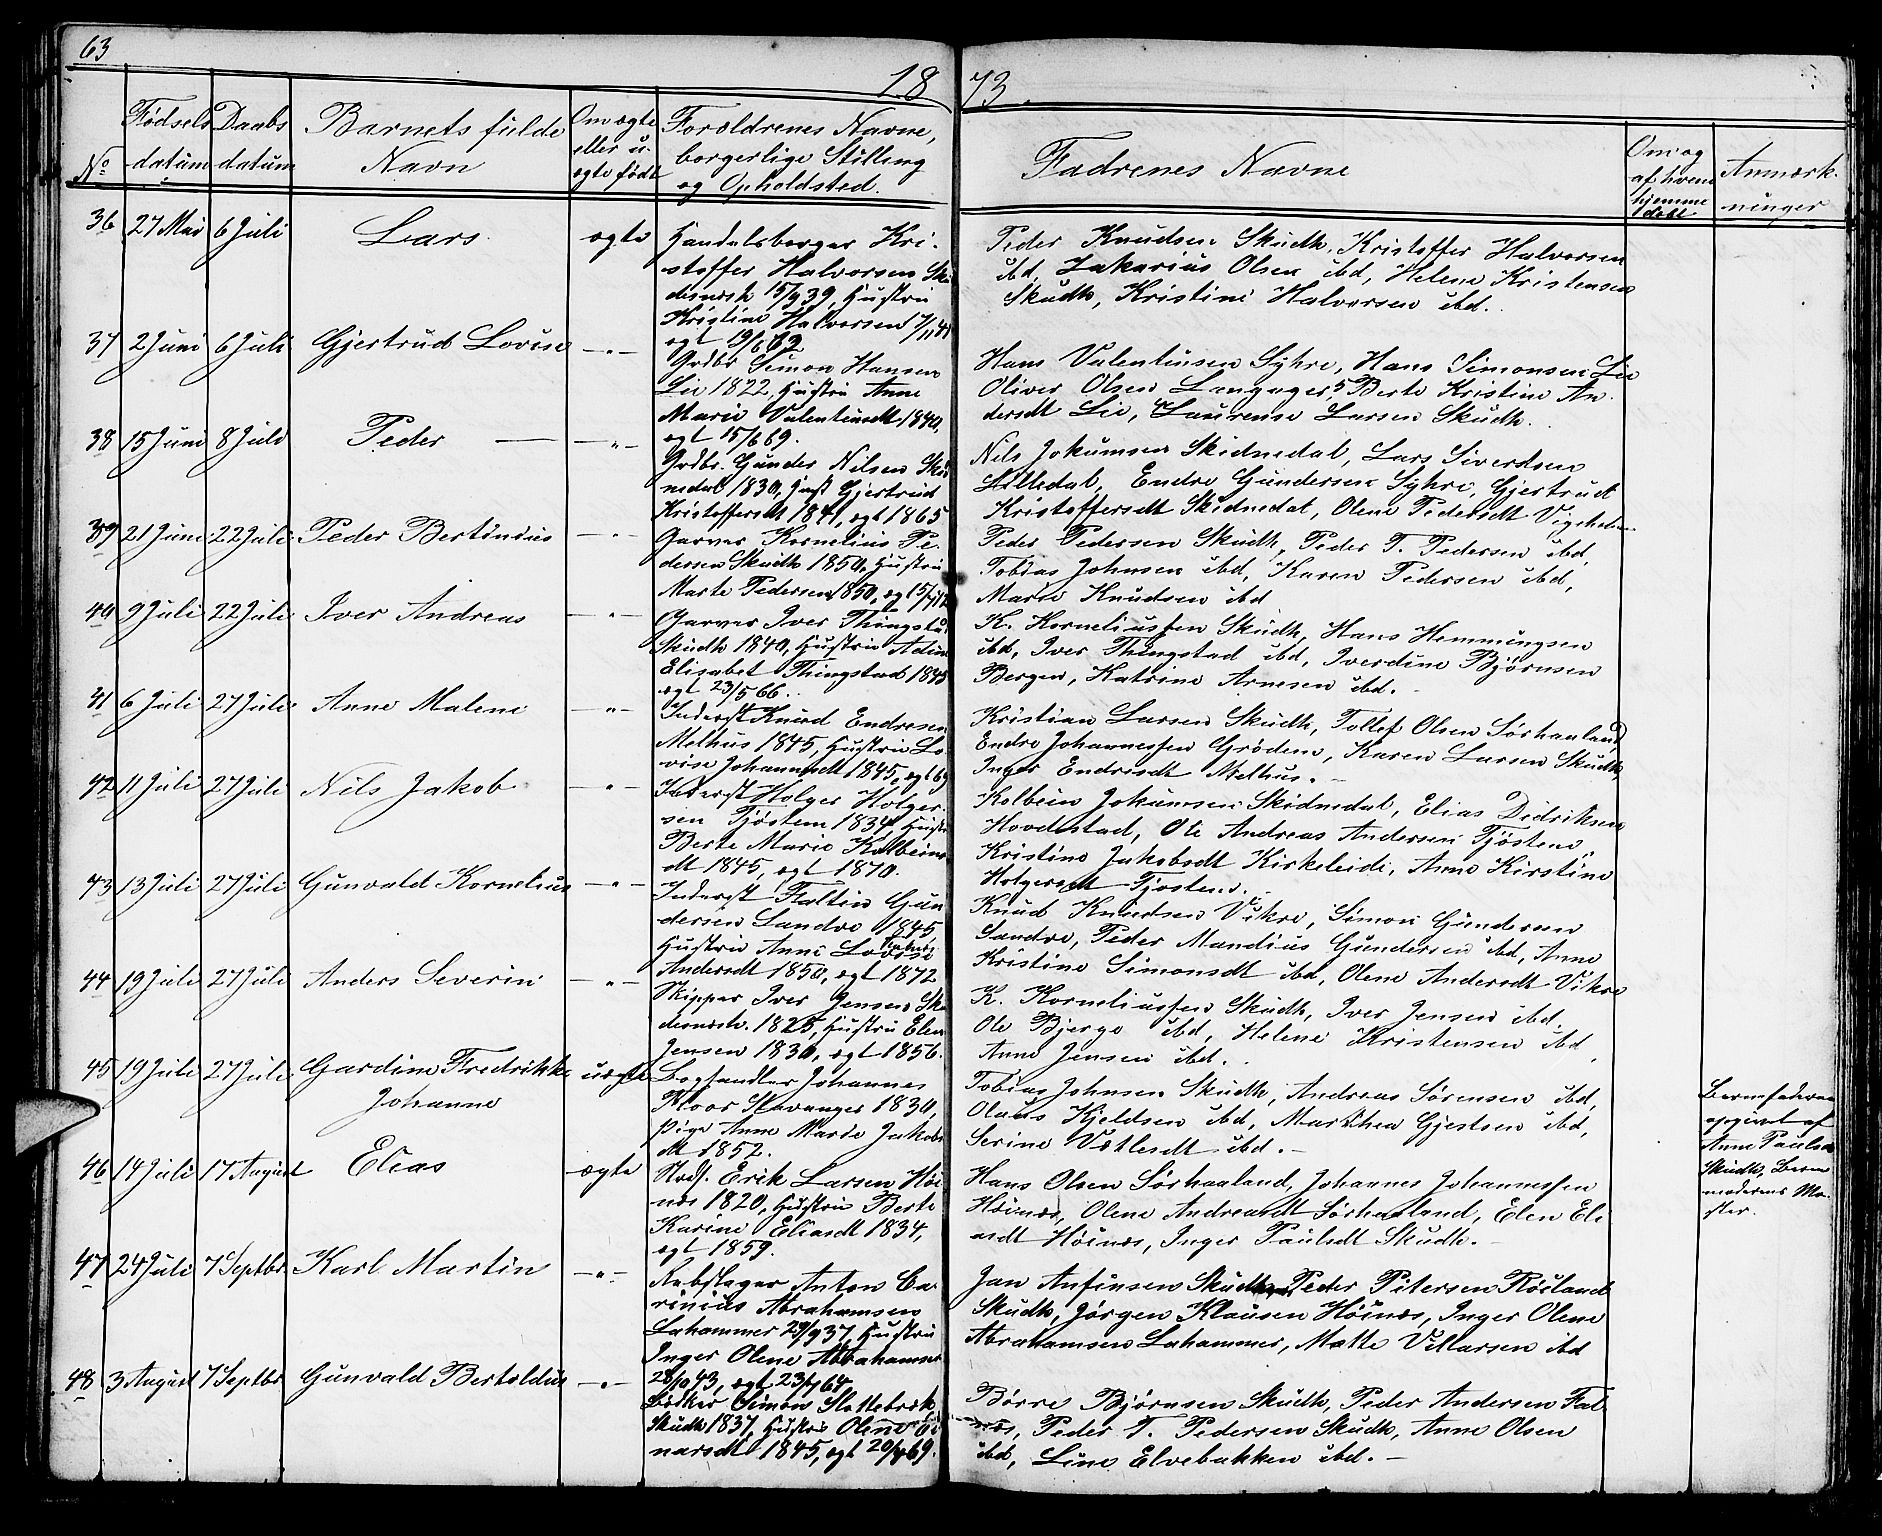 63
1873.
No
Fødsels
datum
Daabs
datum
Barnets fulde
Navn
Om ægte
eller u-
ægte født
Forældrenes Navne,
borgerlige Stilling
og Opholdsted.
Fadrenes Navne
Om og
af hvem
hjemme
døbt
Anmærk-
ninger
36 27 Mai 6 Juli Lars ægte
Handelsborger Kri-
stoffer Halvorsen Sku
desnæsh 15/9 39, Hustru
Kristine Halvorsen 7/11 41
ægt 19/6 62
Peder Knudsen Skudh, Kristoffer Halvorsen
ibd, Zakarius Olsen ibd, Helene Kristensen
Skudh, Kristine Halvorsen ibd.
37 2 Juni 6 Juli Gjertrud Lovise —"—
Grdbr Simon Hansen
Lie 1822, Hustru Anne
Marie Valentinsdt 1840,
ægt 15/6 69.
Hans Valentinsen Syhre, Hans Simonsen Lie
Oliver Olsen Langager, Berte Kristine An-
dersdt Lie, Laurense Larsen Skudh.
38 15 Juni 8 Juli Peder —"—
Grdbr. Gunder Nilsen Skid
nedal 1830, Hust Gjertrud
Kristoffersdt 1841, ægt 1865
Nils Jokumsen Skidnedal, Lars Siverdsen
Lilledal, Endre Gundersen Syhre, Gjertrud
Kristoffersdt Skidnedal, Olene Pedersdt
39 21 Juni 22 Juli Peder Bertinius —"—
Garver Kornelius Pe-
dersen Skudh 1850, Hustru
Marte Pedersen 1850, ægt 15/11 72
Peder Pedersen Skudh, Peder T. Pedersen ibd,
Tobias Johnsen ibd, Karen Pedersen ibd,
Marie Knudsen ibd
40 9 Juli 22 Juli Iver Andreas —"—
Garver Iver Thingstad
Skudh 1840, Hustru Adine
Elisabet Thingstad 1845
ægt 23/5 66.
K. Korneliussen Skudh, Hans Hemmingsen
ibd, Iver Thingstad ibd, Iverdine Bjørnsen
Bergen, Katrine Arnesen ibd.
41 6 Juli 27 Juli Anne Malene —"—
Inderst Knud Endresen
Melhus 1845, Hustru Lo-
vise Johannesdt 1845, ægt 69
Kristian Larsen Skudh, Tollef Olsen Sørhaaland,
Endre Johannessen Grødem, Karen Larsen Skudh,
Inger Endresdt Melhus.
42 11 Juli 27 Juli Nils Jakob —"—
Inderst Holger Holger-
sen Tjøstem 1834, Hustru
Berte Marie Kolbeins
dt 1845, ægt 1870.
Kolbein Jokumsen Skidnedal, Elias Didriksen
Hovdestad, Ole Andreas Andersen Tjøstem,
Kristine Jakobsdt Kirkeleidi, Anne Kirstine
Holgersdt Tjøstem.
43 13 Juli 27 Juli Gunvald Kornelius —"—
Inderst Faltin Gun
dersen Sandve 1845
Hustru Anne Lovise
Andersdt 1850, ægt 1872
Knud Knudsen Vikre, Simon Gundersen
Sandve, Peder Mandius Gundersen ibd, Anne
Kristine Simonsdt ibd, Olene Andersdt Vikre
44 19 Juli 27 Juli Anders Severin —"—
Skipper Iver Jensen Sku
desnæsh. 1825, Hustru Elen
Jensen 1830, ægt 1856.
K. Korneliussen Skudh, Iver Jensen ibd,
Ole Bjerge ibd, Helene Kristensen ibd,
Anne Jensen ibd.
45 19 Juli 27 Juli Gardine Fredrikke
Johanne
uægte
Boghandler Johannes
Kloos Stavanger 1830,
Pige Anne Marie Jakobs
dt 1852.
Tobias Johnsen Skudh, Andreas Sørensen ibd,
Olaus Kjeldsen ibd, Marthea Gjertsen ibd,
Serine ibd.
Barnefaderen
opgivet af
Anne Paulsdt
Skudh, Barne
moderens Mo-
ster.
46 14 Juli 17 August Elias ægte
Erik Larsen Høi-
næs 1820, Hustru Berte
Karine Eliasdt 1834,
ægt 1859.
Hans Olsen Sørhaaland, Johannes Johannessen
Høinæs, Olene Andreasdt Sørhaaland, Elen Eli
asdt Høinæs, Inger Paulsdt Skudh.
47 24 Juli 7 Septbr. Karl Martin —"—
Rebslager Anton Ca-
rinius Abrahamsen
Lahammer 29/9 37, Hustru
Inger Olene Abrahamsen
28/10 43, ægt 23/4 64
Jan Anfinsen Skudh, Peder Petersen Røsland
Skudh, Jørgen Klausen Høinæs, Inger Olene
Abrahamsen Lahammer, Malle Villarsen ibd
48 3 August 7 Septbr. Gunvald Bertoldus —"—
Bødker Simon Slottebræk
Skudh 1837, Hustru Olene Ei-
narsdt 1845, ægt 20/4 69.
Børre Bjørnsen Skudh, Peder Andersen Fal-
næs, Peder T. Pedersen Skudh, Anne Olsen
ibd, Line Elvebakken ibd.